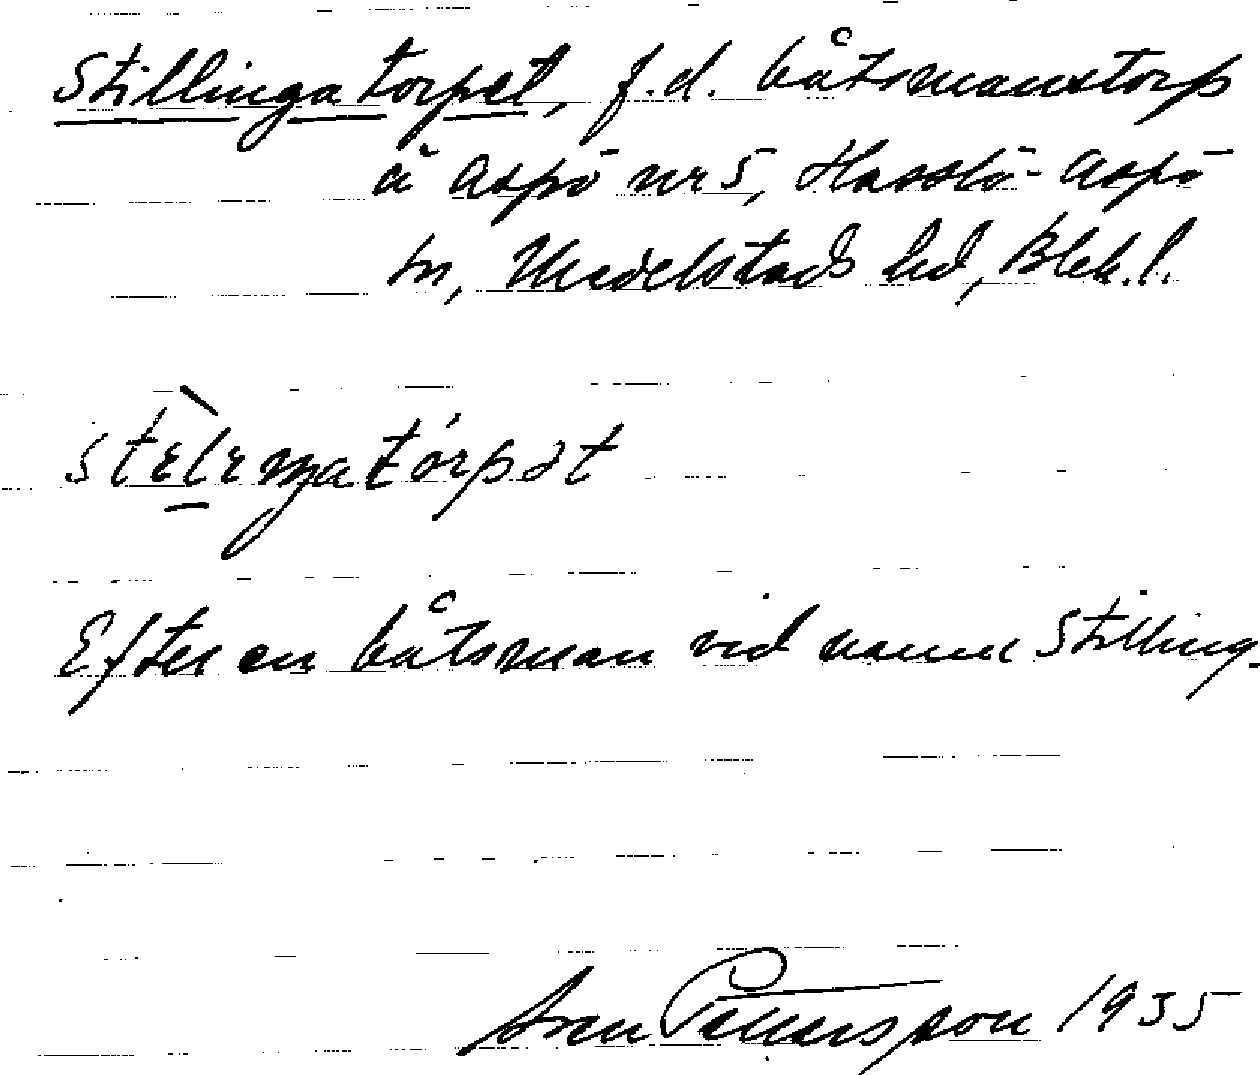 Stillingatorpet, f.d. båtsmanstorp
å Aspö nr 5, Hasslö-Aspö
sn, Medelstads hd, Blek. l.
stèlɛŋatórpət
Efter en båtsman vid namn Stilling.
Sven Pettersson 1935